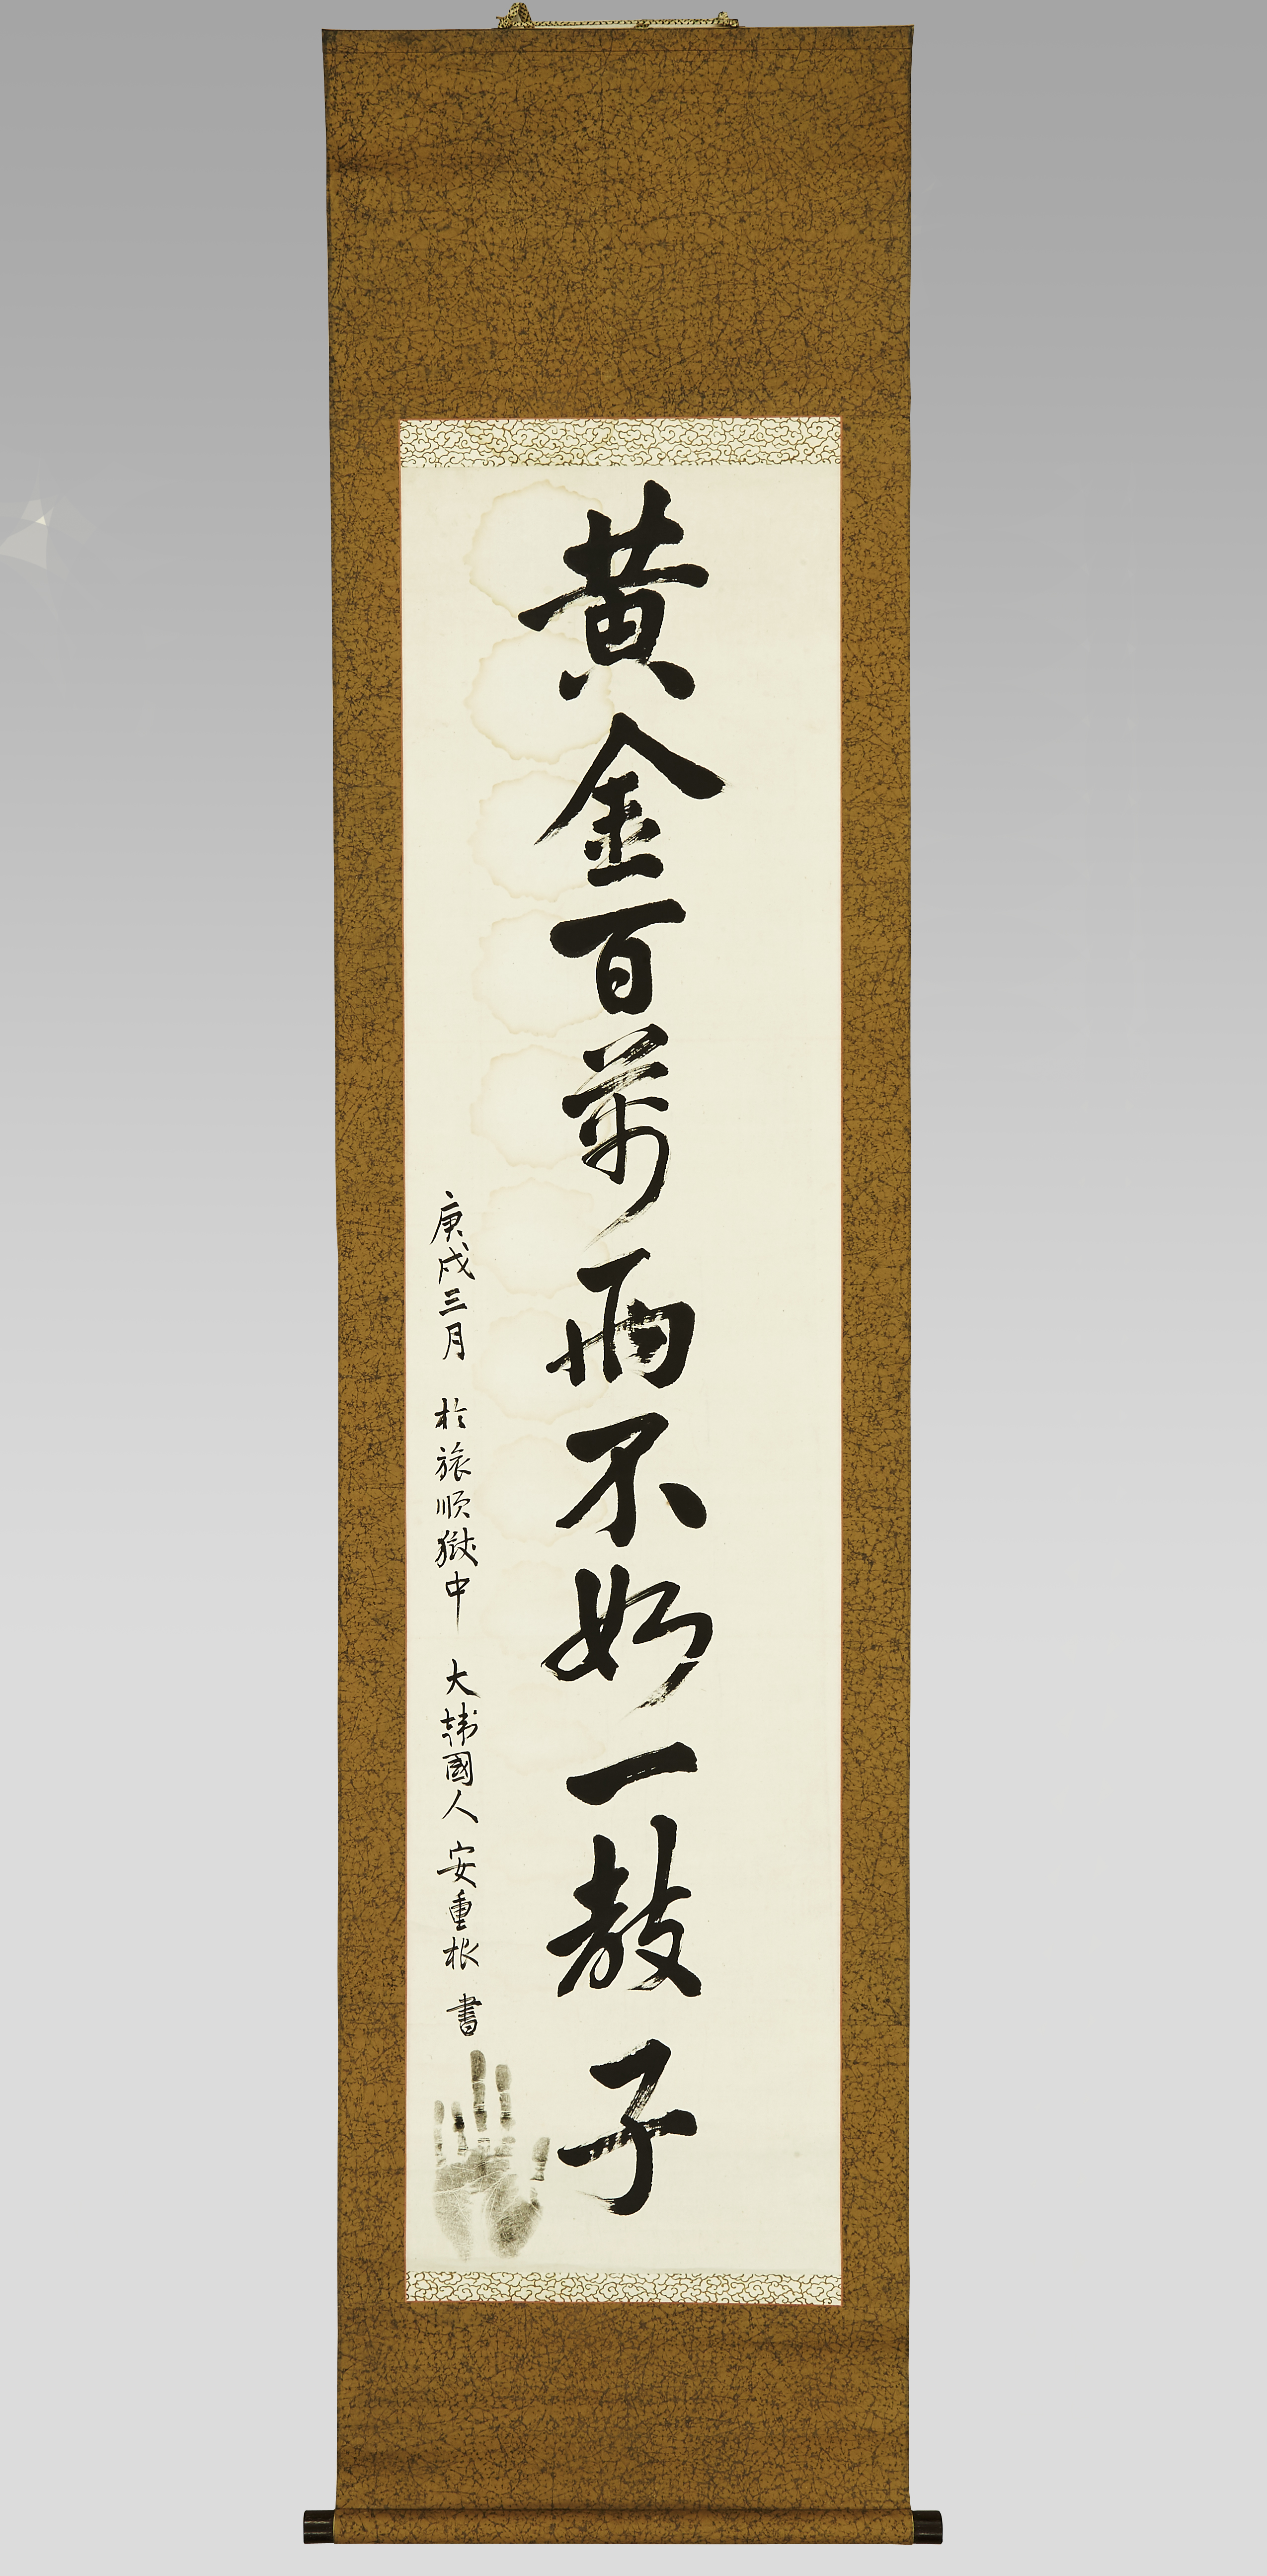 黃金百萬而不如一敎子
庚戌三月 於旅順獄中 大韓國人 安重根 書